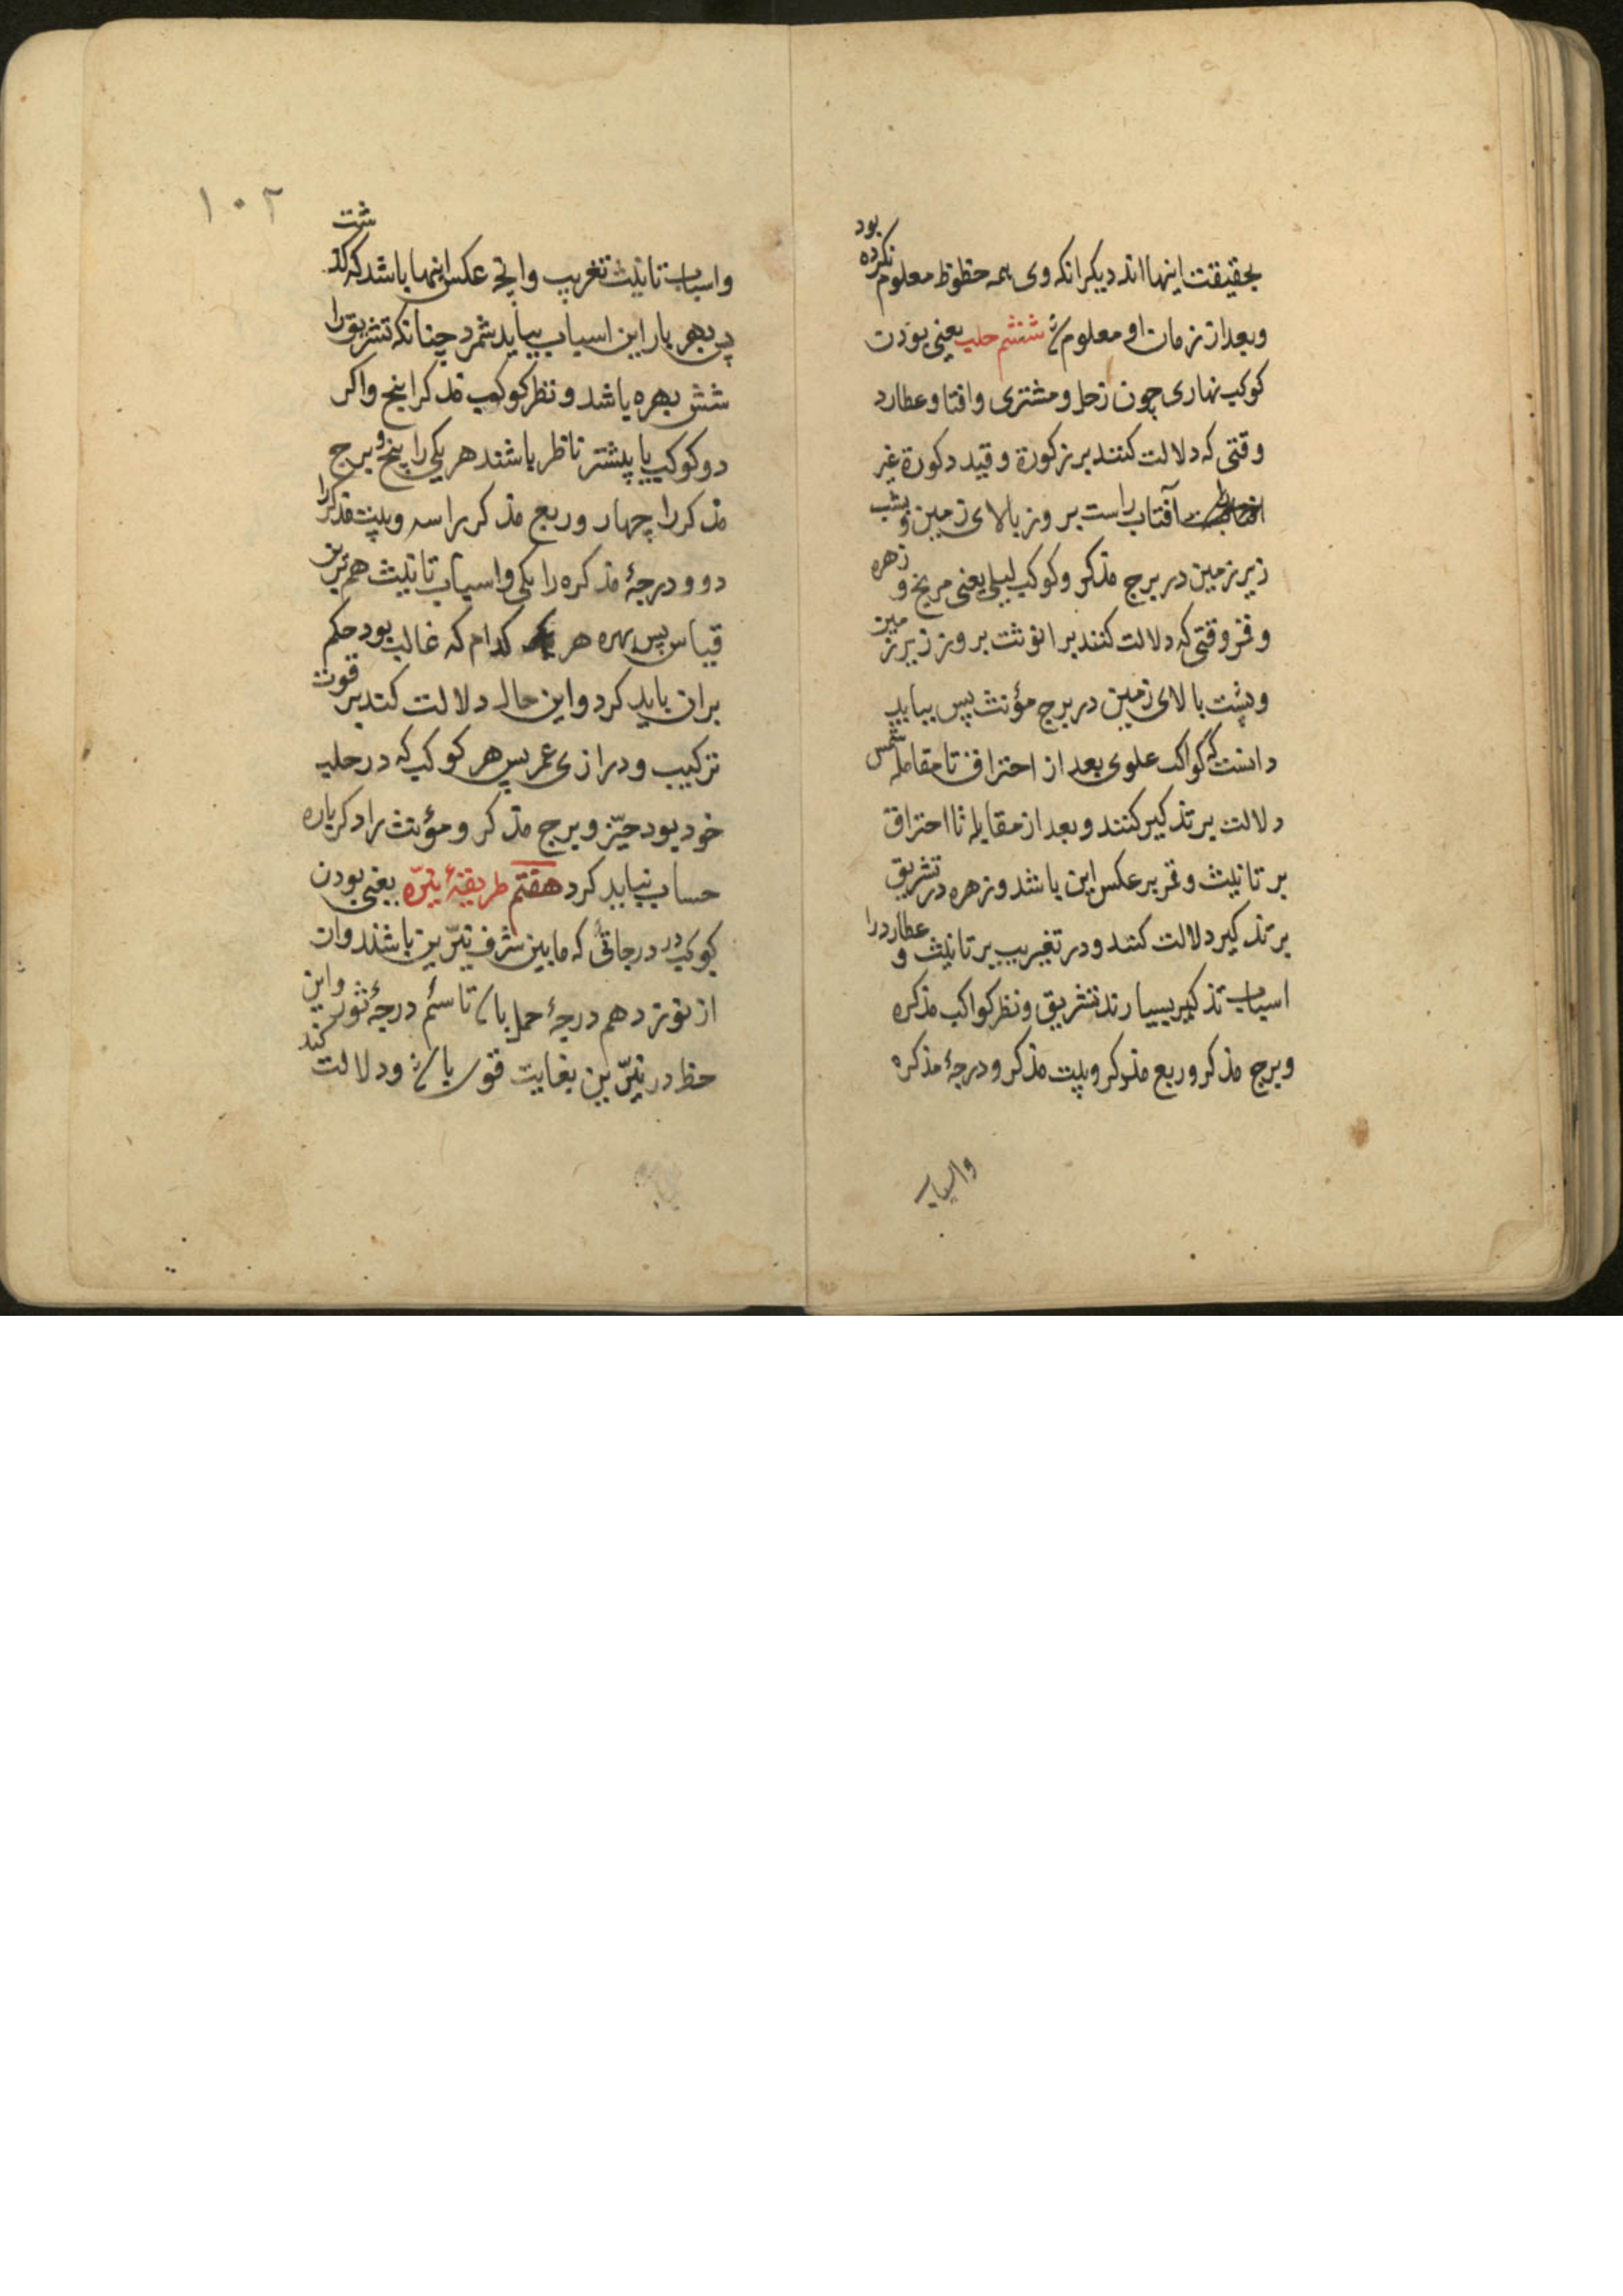 بحقیقت اینها اند دیکر انکه وی همه حظوظ معلوم نکرده بود
وبعد از زمان او معلوم شد ششم حلب یعنی بودن
کوکب نهاری چون زحل ومشتری وافتا وعطارد
وقتی که دلالت کنند بر زکورة وقید دکورة غیر
آفتاب راست بروز بالای زمین وبشب
زیر زمین در برج مذکر وکوکب لیلی یعنی مریخ و زهره
وقمر وقتی که دلالت کنند بر انوثت بروز زیر زمین
وبشب بالای زمین در برج مؤنث پس بباید
دانست که کواکب علوی بعد از احتراق تا مقابله شمس
دلالت بر تذکیر کنند وبعد از مقابله تا احتراق
بر تانیث وقمر بر عکس این باشد وزهره در تشریق
بر تذکیر دلالت کنند ودر تغریب بر تانیث و عطارد را
اسباب تذکیر بسیارند تشریق ونظر کواکب مذکره
وبرج مذکر وربع مذکر وبیت مذکر ودرجهٔ مذکره
واسباب
۱۰۲
واسباب تانیث تغریب وانچه عکس اینها باشد که گذشت
پس بهر بار این اسباب بباید شمرد چنانکه تشریق را
شش بهره باشد ونظر کوکب مذکر را پنج واکر
دو کوکب یا پیشتر ناظر باشند هر یکی را پنج وبرج
مذکر را چهار وربع مذکر را سه وبیت مذکر را
دو ودرجهٔ مذکره را یکی واسباب تانیث هم برین
قیاس پس بهره هر کدام که غالب بود حکم
بران باید کرد واین حال دلالت کند بر قوت
ترکیب ودرازی عمر پس هر کوکب که در حلب
خود بود حیّز وبرج مذکر ومؤنث را دکر باره
حساب نباید کرد هفتم طریقهٔ نیّره یعنی بودن
کوکب در درجاتی که مابین شرف نیّرین باشند وان
از نوزدهم درجهٔ حمل باشد تا سئم درجهٔ ثور واین
حظ در نیّرین بغایت قوی باشد ودلالت کند